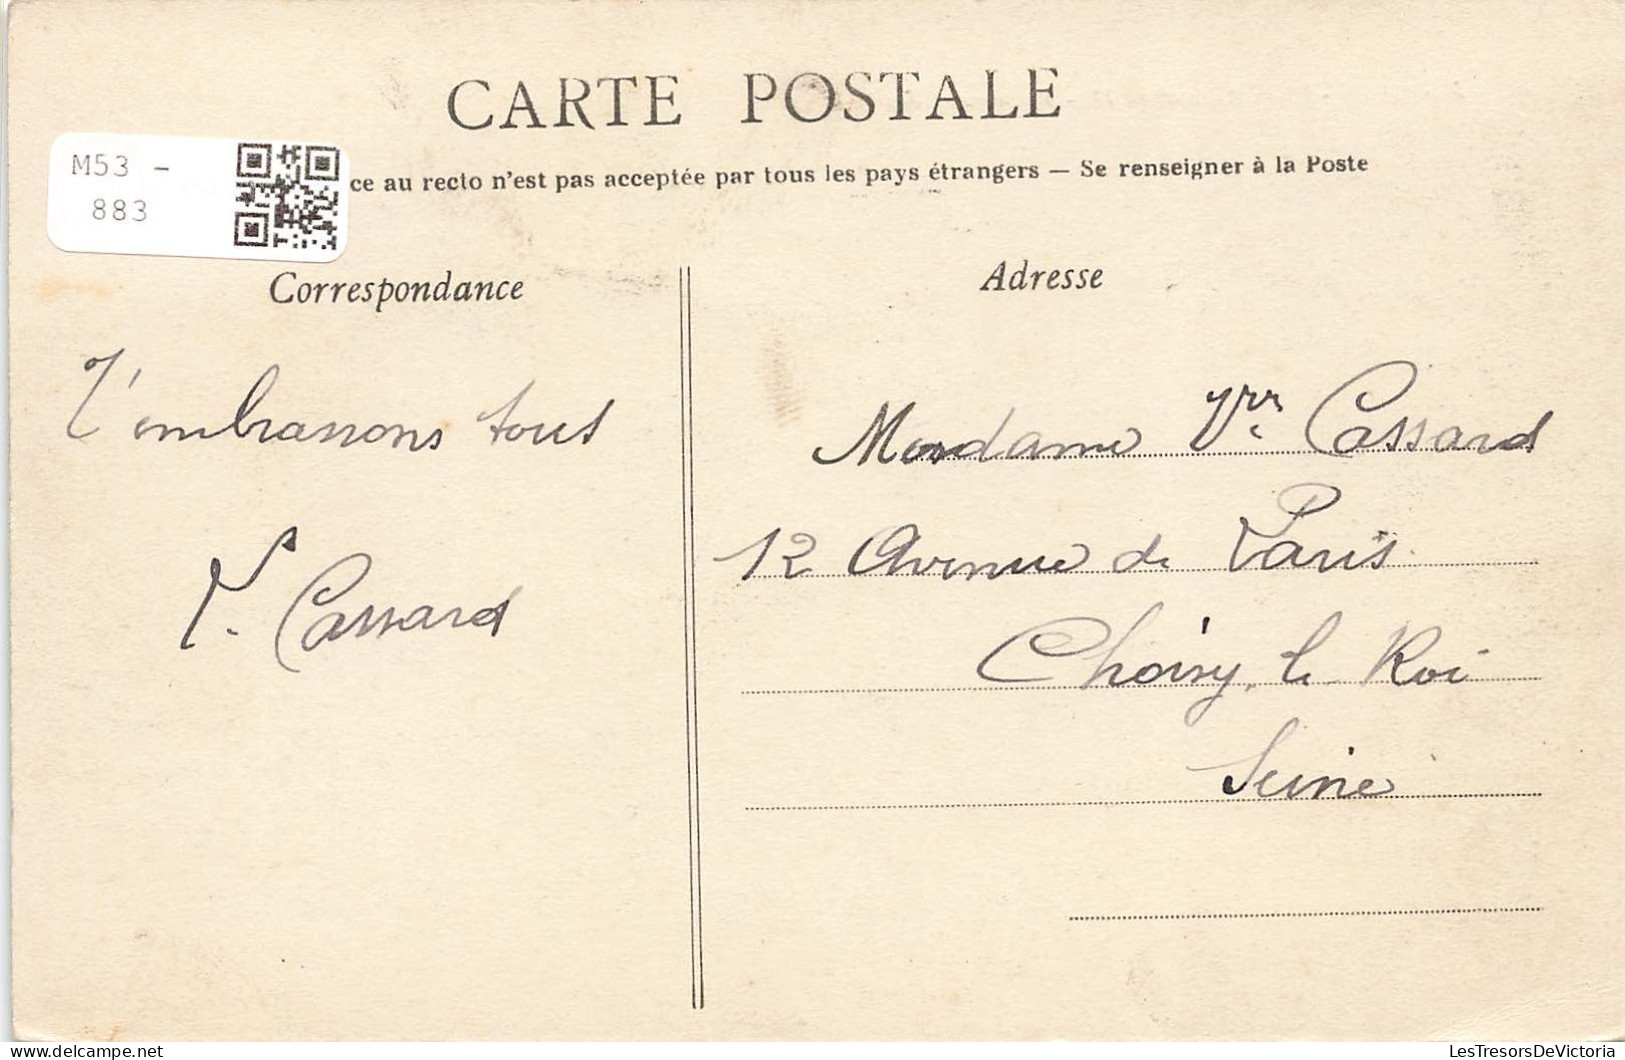 CARTE POSTALE
M53 -
883
ce au recto n'est pas acceptée par tous les pays étrangers — Se renseigner à la Poste
Correspondance
T'embrassons tous
Cassard
Adresse
Madame Vve Cassard
12 Avenue de Paris
Choisy le Roi
Seine
LesTresorsDeVictoria